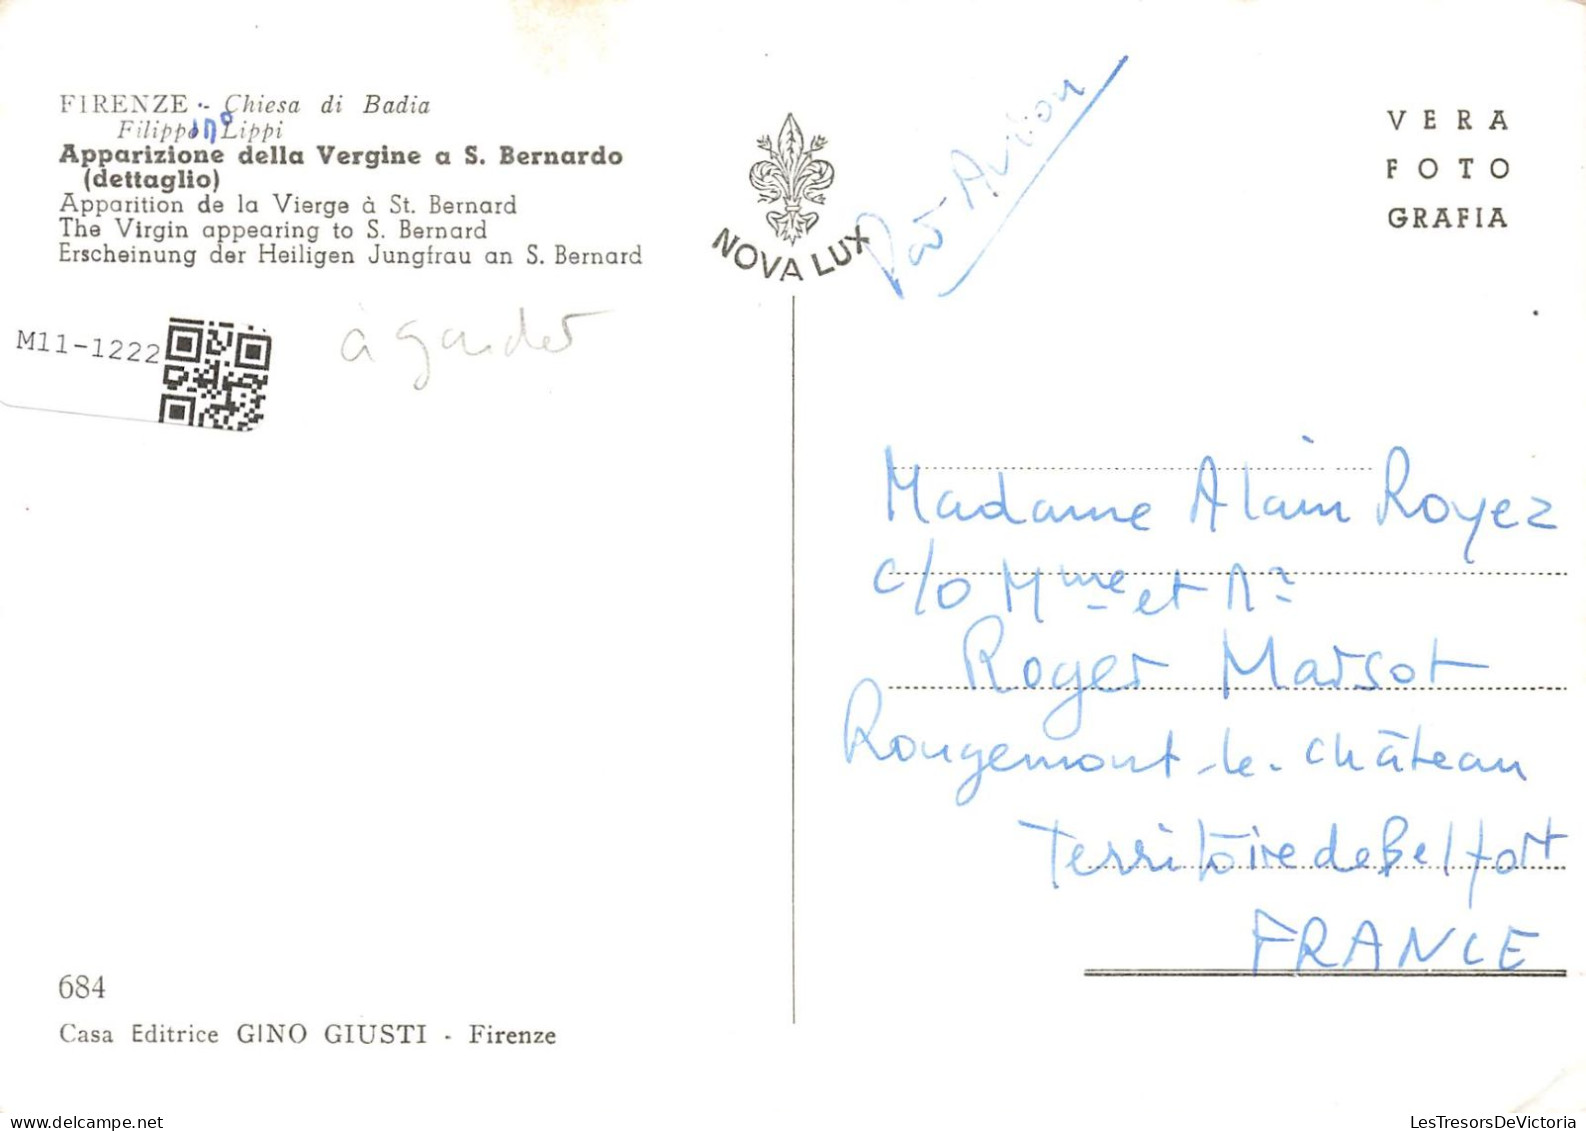 FIRENZE - Chiesa di Badia
Filippino Lippi
Apparizione della Vergine a S. Bernardo
(dettaglio)
Apparition de la Vierge à St. Bernard
The Virgin appearing to S. Bernard
Erscheinung der Heiligen Jungfrau an S. Bernard
M11-1222
à garder
NOVA LUX
Par Avion
VERA
FOTO
GRAFIA
Madame Alain Royez
c/o Mme et Mr
Roger Marsot
Rougemont-le-Château
Territoire de Belfort
FRANCE
684
Casa Editrice GINO GIUSTI - Firenze
LesTresorsDeVictoria